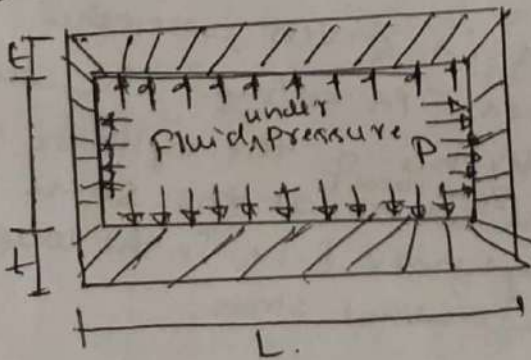 t
under
fluid ^ pressure P
t
L.